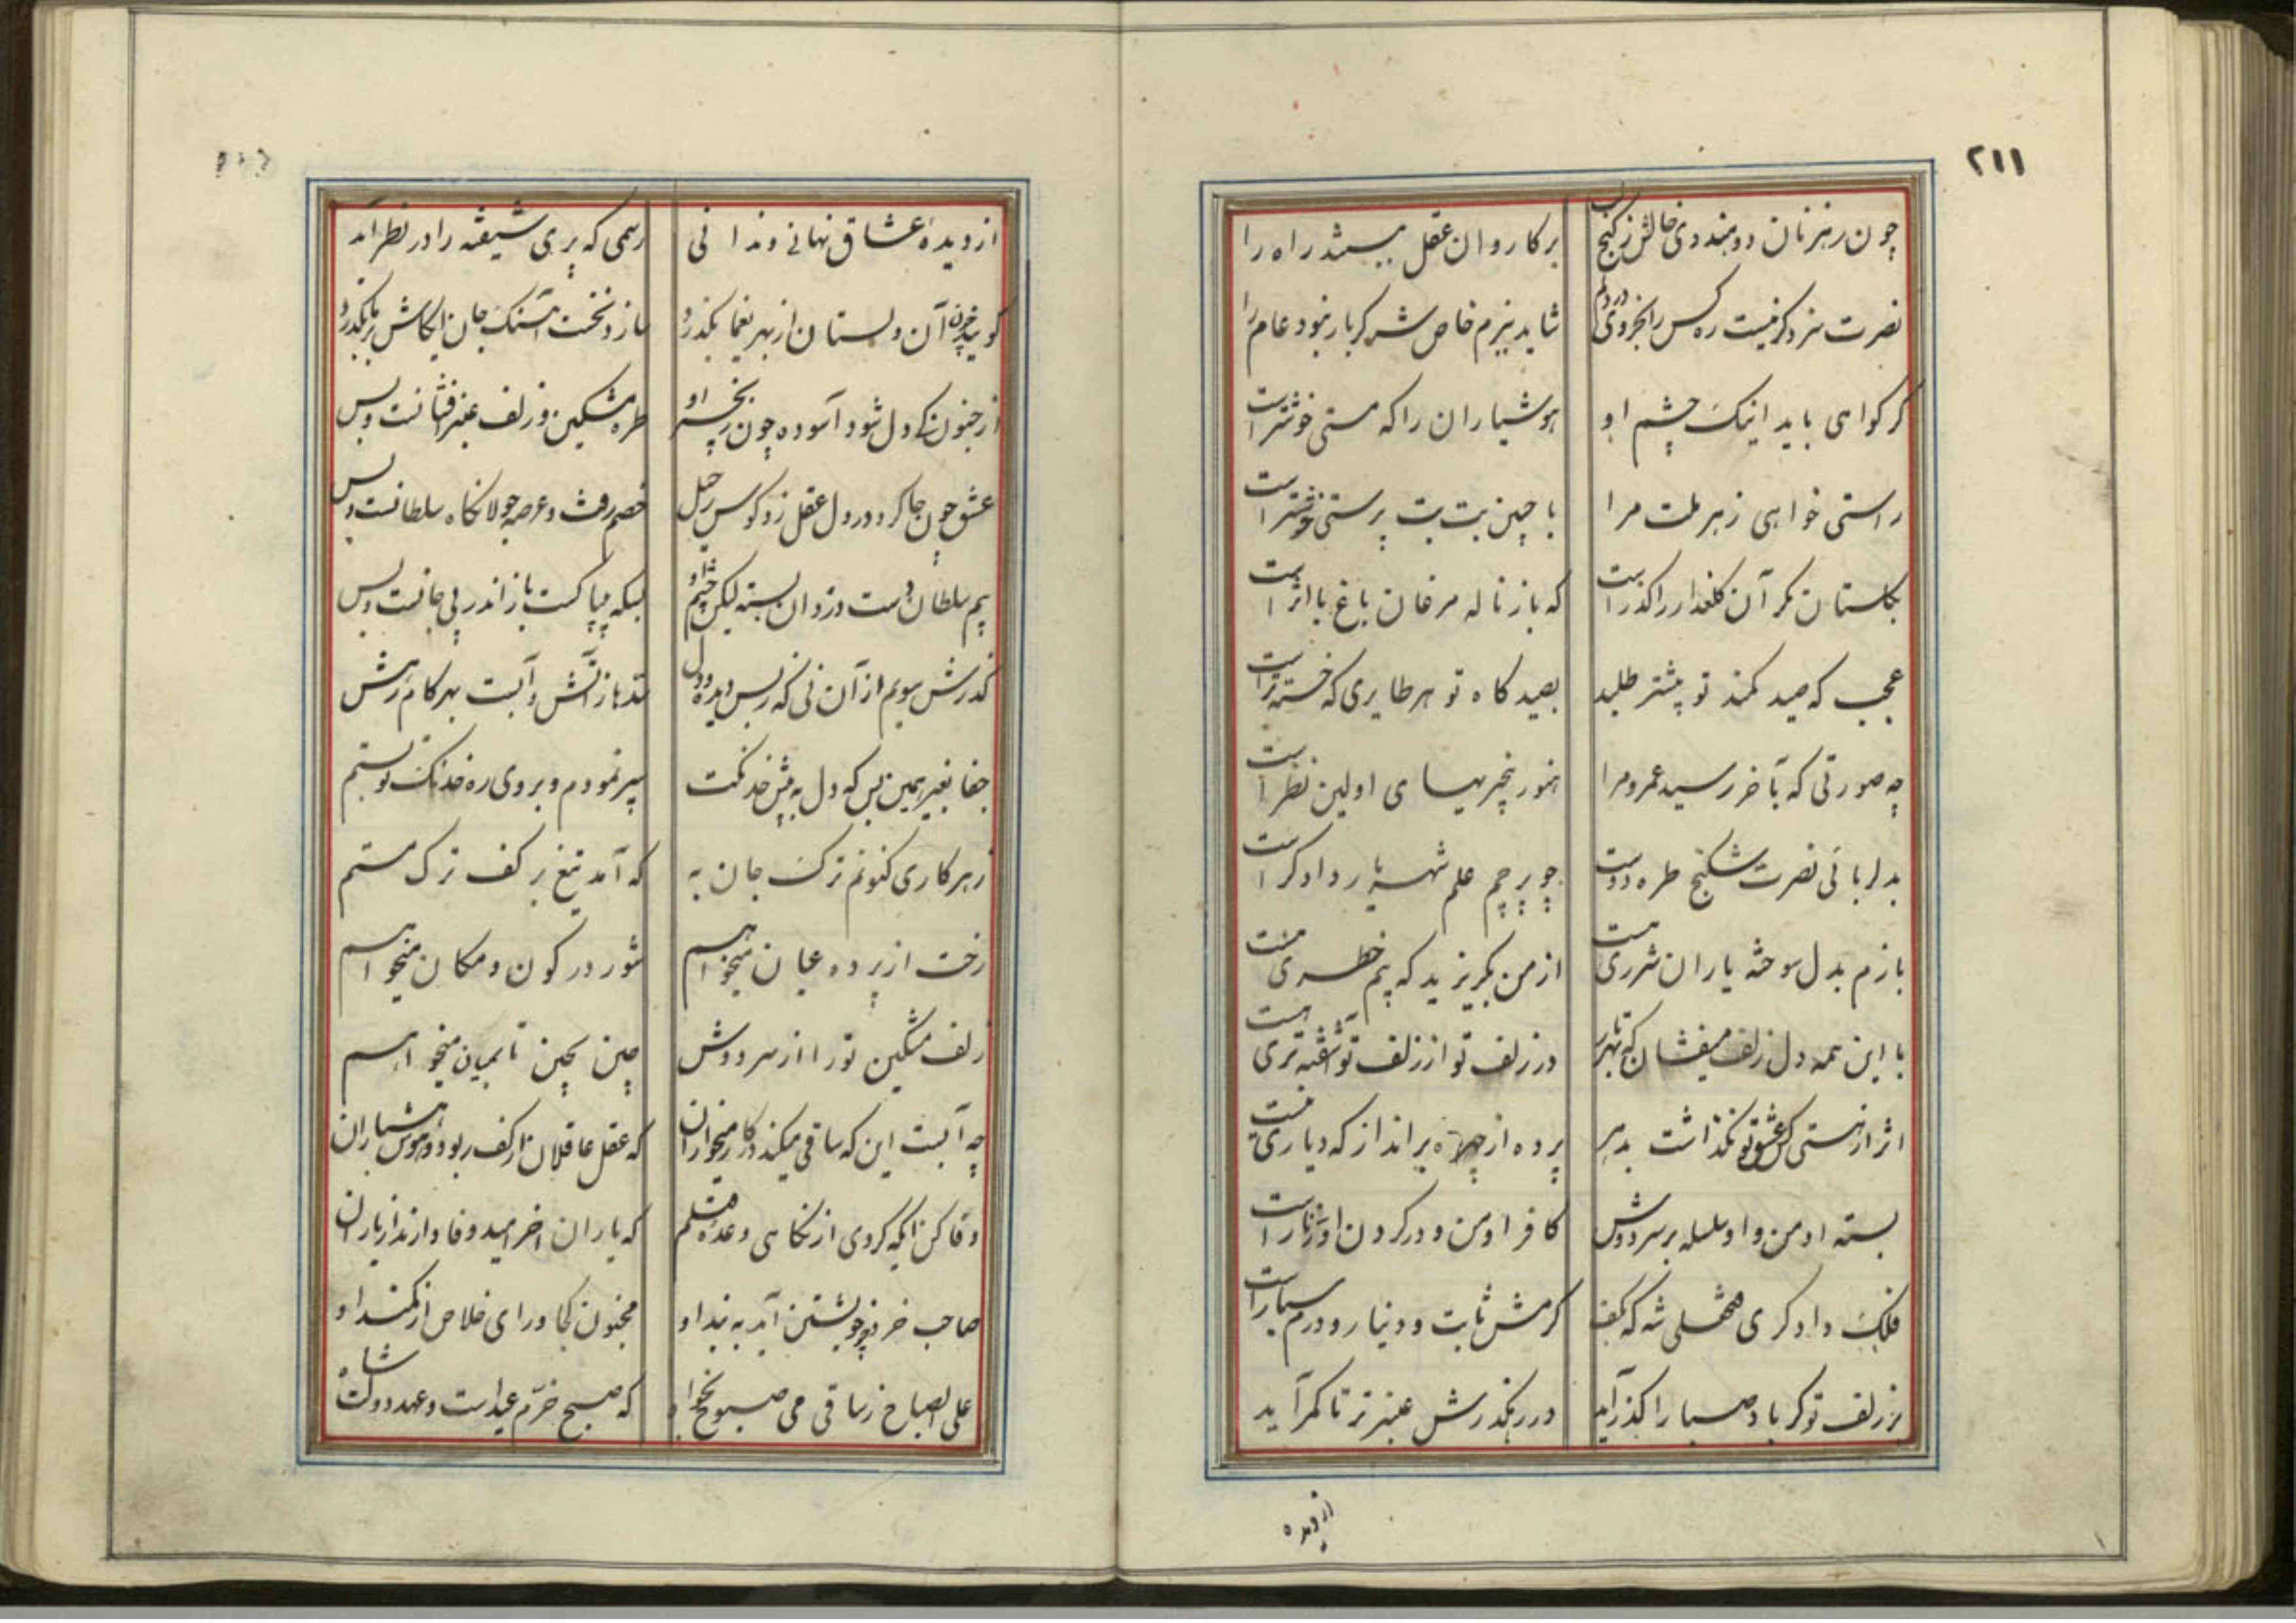 ٢١١
چون رهزنان دو هندوی خالش ز کنج لب برکاروان عقل ببستند راه را
نصرت سزد کر نیست ره کس را بجز وی در دلم شاید ببزم خاص شه کر بار نبود عام را
کر کواهی باید اینک چشم او هوشیاران را که مستی خوشتر است
راستی خواهی ز هر ملت مرا با چنین بت بت پرستی خوشتر است
بکلستان مکر آن کلعذار را کذر است که باز ناله مرغان باغ با اثر است
عجب که صید کمند تو بیشتر طلبد بصید کاه تو هر طایری که خسته تر است
چه صورتی که بآخر رسید عمر و مرا هنوز چهره بسیمای اولین نظر است
بدلربائی نصرت شکنج طره دوست چو پرچم علم شهریار دادکر است
بازم بدل سوخته یاران شرری هست از من بکریزید که بیم خطری هست
با این همه دل زلف میفشان که بهر تار در زلف تو از زلف تو آشفته تری هست
اثر از هستی کس عشق تو نکذاشت بدهر پرده از چهره برانداز که دیاری نیست
بسته او من و او سلسله بر سر دوش کافر او من و در کردن او زنار است
فلک دادکری فتحعلی شه که بکف کرمش ثابت و دینار و درم سیار است
بر زلف تو کر باد صبا را کذر آید در رهکذرش عنبر تر تا کمر آید
از دیده
از دیدهٔ عشاق نهانی و ندانی رسمی که پری شیفته را در نظر آید
کویند چون آن دلستان از بهر یغما بکذرد سازد نخست آهنک جان ایکاش بر ما بکذرد
از جنون کی دل شود آسوده چون زنجیر او طره مشکین و زلف عنبر افشانست و بس
عشق چون جا کرد در دل عقل زد کوس رحیل خصم رفت و عرصه جولانکاه سلطانست و بس
بیم سلطان دست دزدان بسته لیکن چشم او بسکه بیباکست باز اندر پی جانست و بس
کذرش سویم از آن نی که ز بس دیده و دل بقدمها ز آتش و آبست بهر کام رهش
جفا بغیر همین بس که دل به پیش خدنکت سپر نمودم و بر وی ره خدنک تو بستم
ز هر کاری کنونم ترک جان به که آمد تیغ بر کف ترک مستم
رخت از پرده عیان میخواهم شور در کون و مکان میخواهم
زلف مشکین تو را از سر دوش چین بچین تا بمیان میخواهم
چه آبست این که ساقی میکند در کار میخواران که عقل عاقلان از کف ربود و هوش هشیاران
وفا کن انکه کردی از نکاهی وعدهٔ قتلم که یاران اخر امید وفا دارند از یاران
صاحب خرد ز خویشتن آید به بند او مجنون کجا و رای خلاص از کمند او
علی الصباح ز ساقی می صبوح بخواه که صبح خرّم عید است و عهد دولت شاه